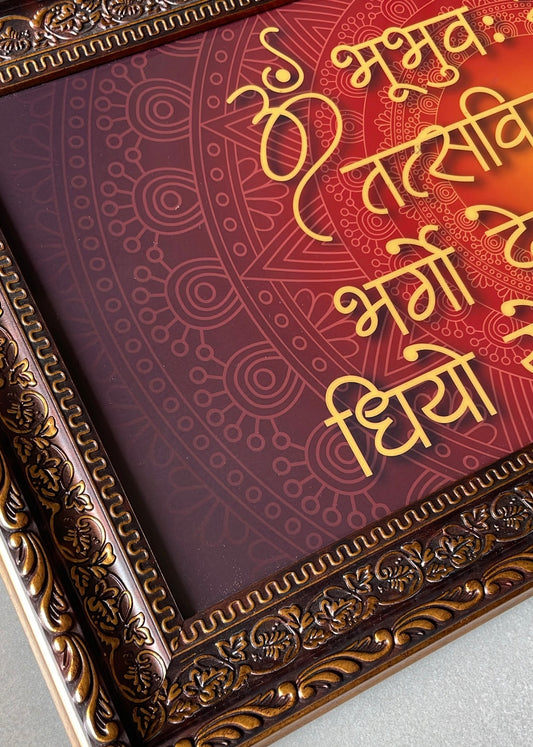 ॐ भूर्भुवः
तत्सवि
भर्गो दे
धियो